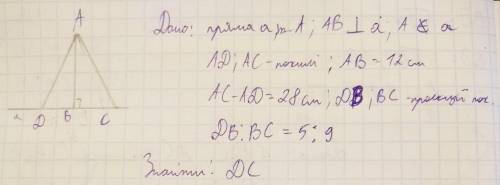 A
a D B C
Дано: пряма a і т. A; AB ⊥ a, A ∉ a
AD; AC - похилі; AB = 12 см
AC - AD = 28 см; DB; BC - проекції пох.
DB : BC = 5 : 9
Знайти: DC